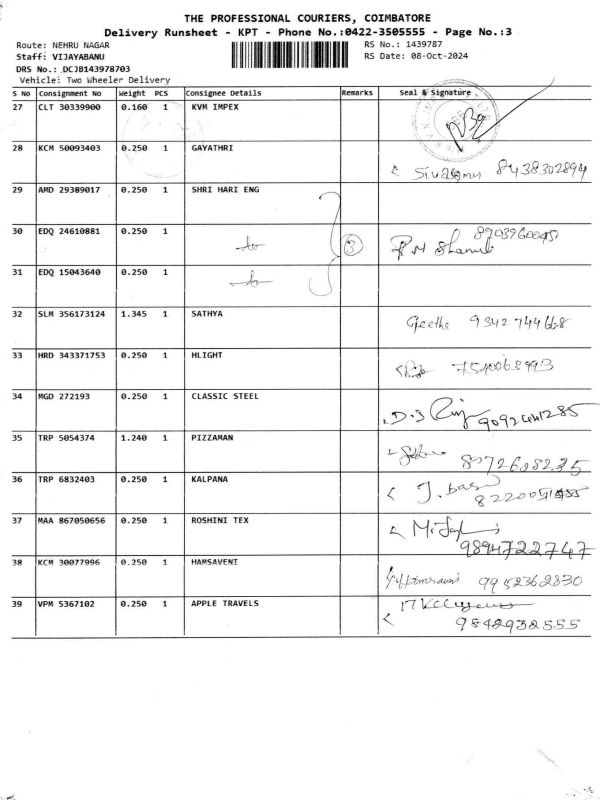 THE PROFESSIONAL COURIERS, COIMBATORE
Delivery Runsheet - KPT - Phone No.:0422-3505555 - Page No.:3
Route: NEHRU NAGAR RS No.: 1439787
Staff: VIJAYABANU RS Date: 08-Oct-2024
DRS No.: DCJB143978703
Vehicle: Two Wheeler Delivery
S No Consignment No Weight PCS Consignee Details Remarks Seal & Signature
27 CLT 30339900 0.160 1 KVM IMPEX
28 KCM 50093403 0.250 1 GAYATHRI
8438302894
29 AMD 29389017 0.250 1 SHRI HARI ENG
30 EDQ 24610881 0.250 1 3
31 EDQ 15043640 0.250 1
32 SLM 356173124 1.345 1 SATHYA Geetha 9342744668
33 HRD 343371753 0.250 1 HLIGHT
34 MGD 272193 0.250 1 CLASSIC STEEL
35 TRP 5054374 1.240 1 PIZZAMAN
36 TRP 6832403 0.250 1 KALPANA
37 MAA 867050656 0.250 1 ROSHINI TEX
9894722747
38 KCM 30077996 0.250 1 HAMSAVENI 9952362830
39 VPM 5367102 0.250 1 APPLE TRAVELS
9842932555